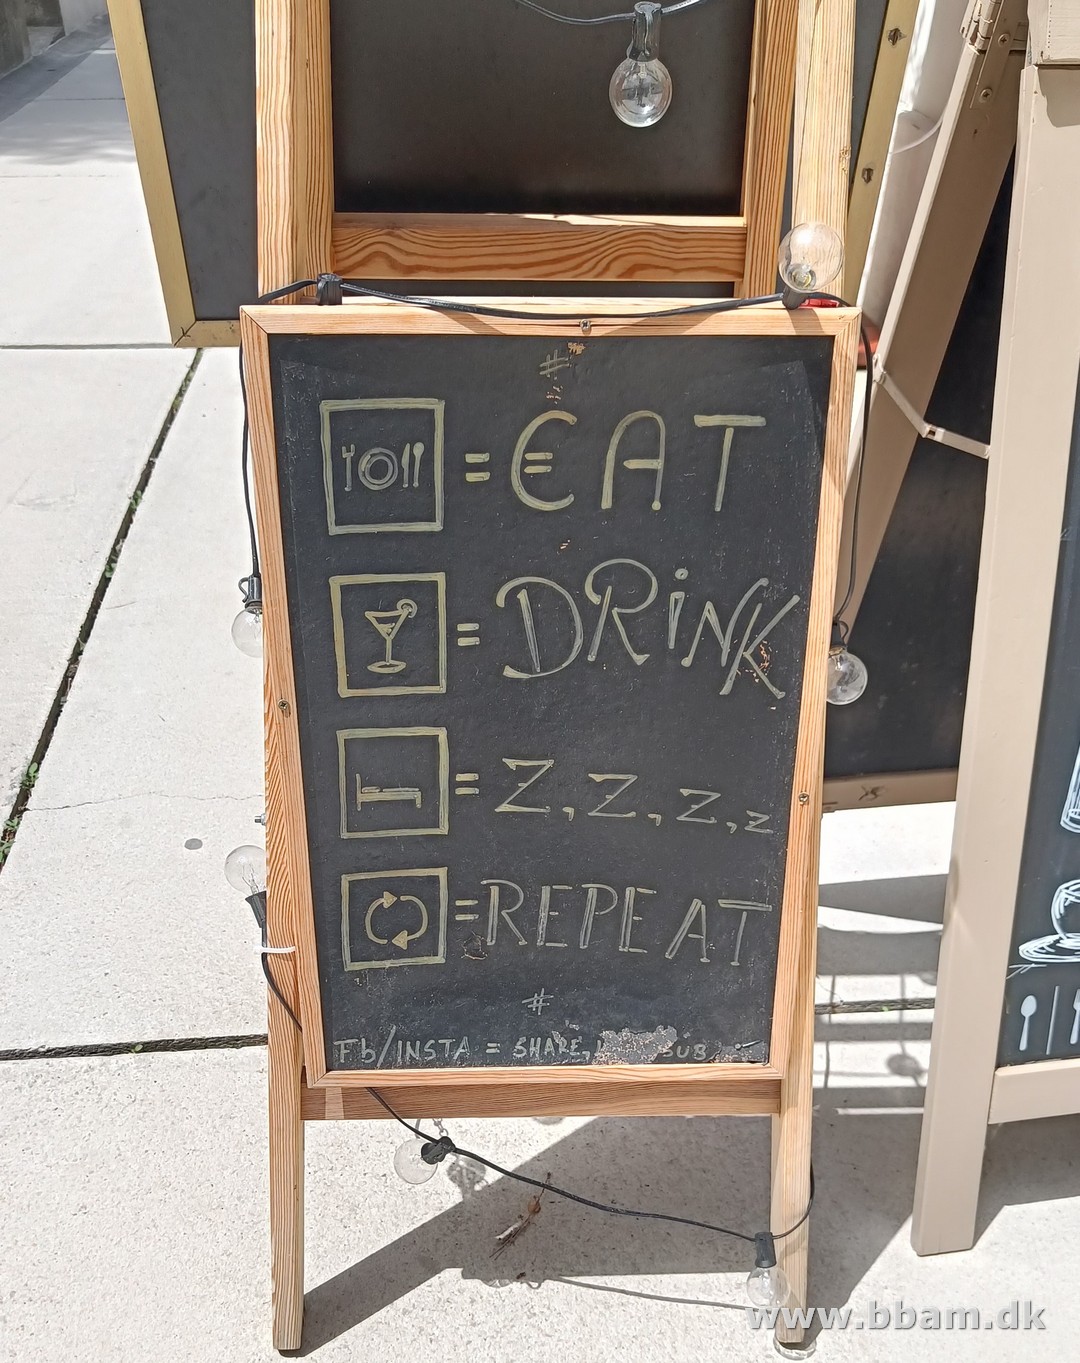 #
= €AT
= DRiNK
= Z, Z, Z, Z
= REPEAT
#
Fb/INSTA = SHARE,
www.bbam.dk